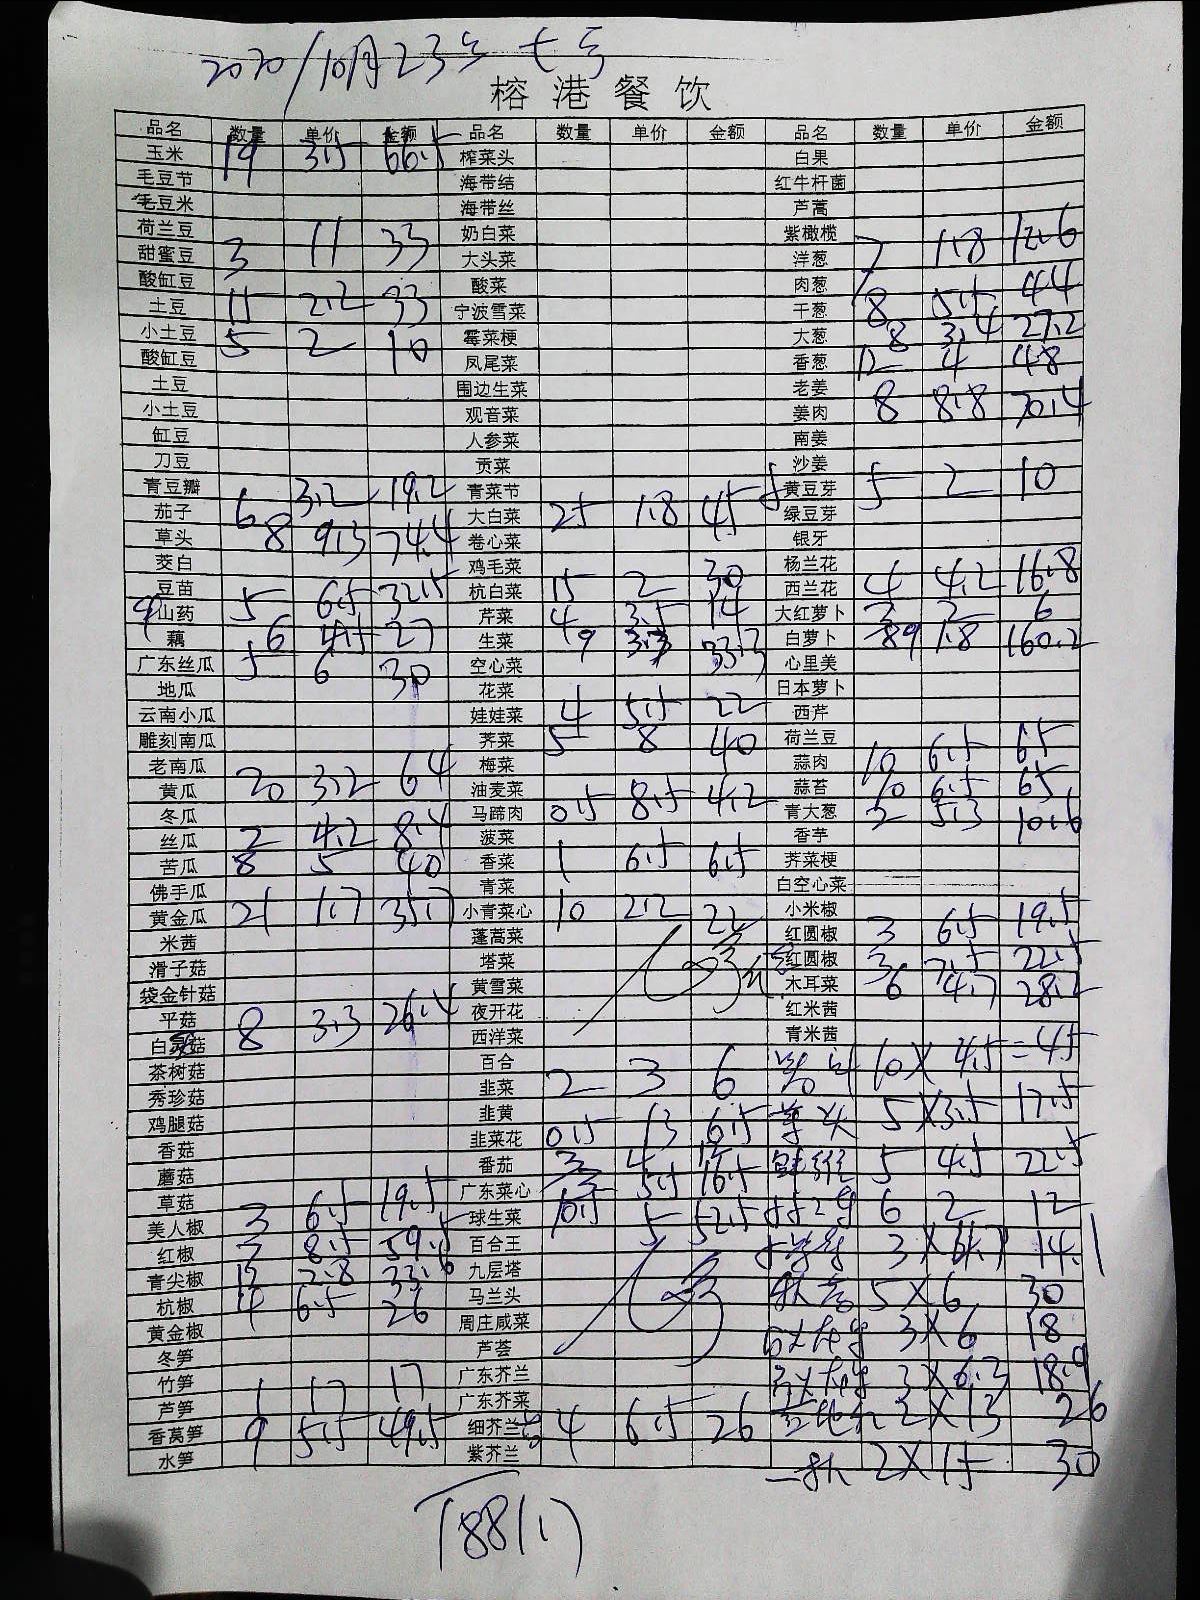 2020/10月23号 七号
榕港餐饮
品名 数量 单价 金额 品名 数量 单价 金额 品名 数量 单价 金额
玉米 19 3.5 66.5 榨菜头 白果
毛豆节 海带结 红牛杆菌
毛豆米 海带丝 芦蒿
荷兰豆 奶白菜 紫橄榄
甜蜜豆 3 11 33 大头菜 洋葱 7 1.8 12.6
酸缸豆 酸菜 肉葱
土豆 15 2.2 33 宁波雪菜 干葱 8 5.5 44
小土豆 5 2 10 霉菜梗 大葱 8 3.4 27.2
酸缸豆 凤尾菜 香葱 12 4 48
土豆 围边生菜 老姜
小土豆 观音菜 姜肉 8 8.8 70.4
缸豆 人参菜 南姜
刀豆 贡菜 沙姜
青豆瓣 青菜节 黄豆芽 5 2 10
茄子 6 3.2 19.2 大白菜 25 1.8 45 绿豆芽
草头 8 9.3 74.4 卷心菜 银牙
茭白 鸡毛菜 杨兰花
豆苗 5 6.5 32.5 杭白菜 15 2 30 西兰花 4 4.2 16.8
山药 6 4.5 27 芹菜 4 3.5 14 大红萝卜 3 2 6
藕 5 6 30 生菜 9 3.7 33.3 白萝卜 89 1.8 160.2
广东丝瓜 空心菜 心里美
地瓜 花菜 日本萝卜
云南小瓜 娃娃菜 4 5.5 22 西芹
雕刻南瓜 荠菜 5 8 40 荷兰豆
老南瓜 梅菜 蒜肉 10 6.5 65
黄瓜 20 3.2 64 油麦菜 蒜苔 10 6.5 65
冬瓜 马蹄肉 0.5 8.5 4.2 青大葱 2 5.3 10.6
丝瓜 2 4.2 8.4 菠菜 香芋
苦瓜 8 5 40 香菜 1 6.5 6.5 荠菜梗
佛手瓜 青菜 白空心菜
黄金瓜 21 1.7 35.7 小青菜心 10 2.2 22 小米椒
米茜 蓬蒿菜 红圆椒 3 6.5 19.5
滑子菇 塔菜 红圆椒 3 7.5 22.5
袋金针菇 黄雪菜 木耳菜 6 4.7 28.2
平菇 夜开花 红米茜
白灵菇 8 3.3 26.4 西洋菜 青米茜
茶树菇 百合 10×4.5=45
秀珍菇 韭菜 2 3 6 5×3.5 17.5
鸡腿菇 韭黄 草头
香菇 韭菜花 0.5 13 6.5 5 4.5 22.5
蘑菇 番茄 3 4 12
草菇 广东菜心 3 5.5 16.5 6 2 12
美人椒 3 6.5 19.5 球生菜 10.5 5 52.5
红椒 7 8.5 59.5 百合王 3×4.7 14.1
青尖椒 12 2.8 33.6 九层塔
杭椒 4 6.5 26 马兰头 5×6 30
黄金椒 周庄咸菜
冬笋 芦荟 3×6 18
竹笋 广东芥兰
芦笋 1 17 17 广东芥菜 3×6.3 18.9
香莴笋 9 5.5 49.5 细芥兰 4 6.5 26 2×13 26
水笋 紫芥兰 2×15 30
1881.1